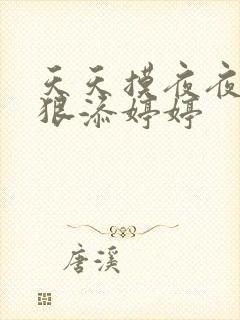 天天摸夜夜
狠添婷婷
唐溪